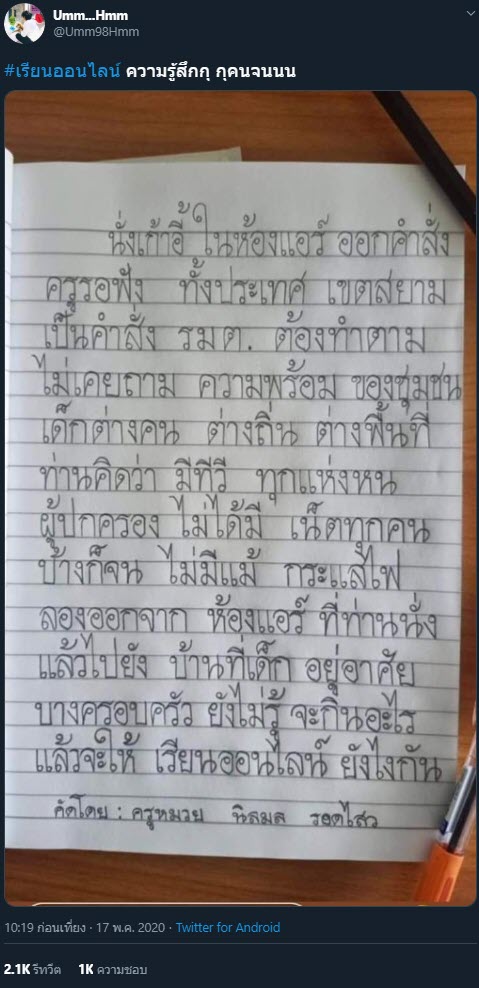 Umm...Hmm
@Umm98Hmm
#เรียนออนไลน์ ความรู้สึกกุ กุคนจนนน
นั่งเก้าอี้ ในห้องแอร์ ออกคำสั่ง
ครูรอฟัง ทั้งประเทศ เขตสยาม
เป็นคำสั่ง รมต. ต้องทำตาม
ไม่เคยถาม ความพร้อม ของชุมชน
เด็กต่างคน ต่างถิ่น ต่างพื้นที่
ท่านคิดว่า มีทีวี ทุกแห่งหน
ผู้ปกครอง ไม่ได้มี เน็ตทุกคน
บ้างก็จน ไม่มีแม้ กระแสไฟ
ลองออกจาก ห้องแอร์ ที่ท่านนั่ง
แล้วไปยัง บ้านที่เด็ก อยู่อาศัย
บางครอบครัว ยังไม่รู้ จะกินอะไร
แล้วจะให้ เรียนออนไลน์ ยังไงกัน
คัดโดย : ครูหมวย นิสมล รอดไสว
10:19 ก่อนเที่ยง · 17 พ.ค. 2020 · Twitter for Android
2.1K รีทวีต 1K ความชอบ